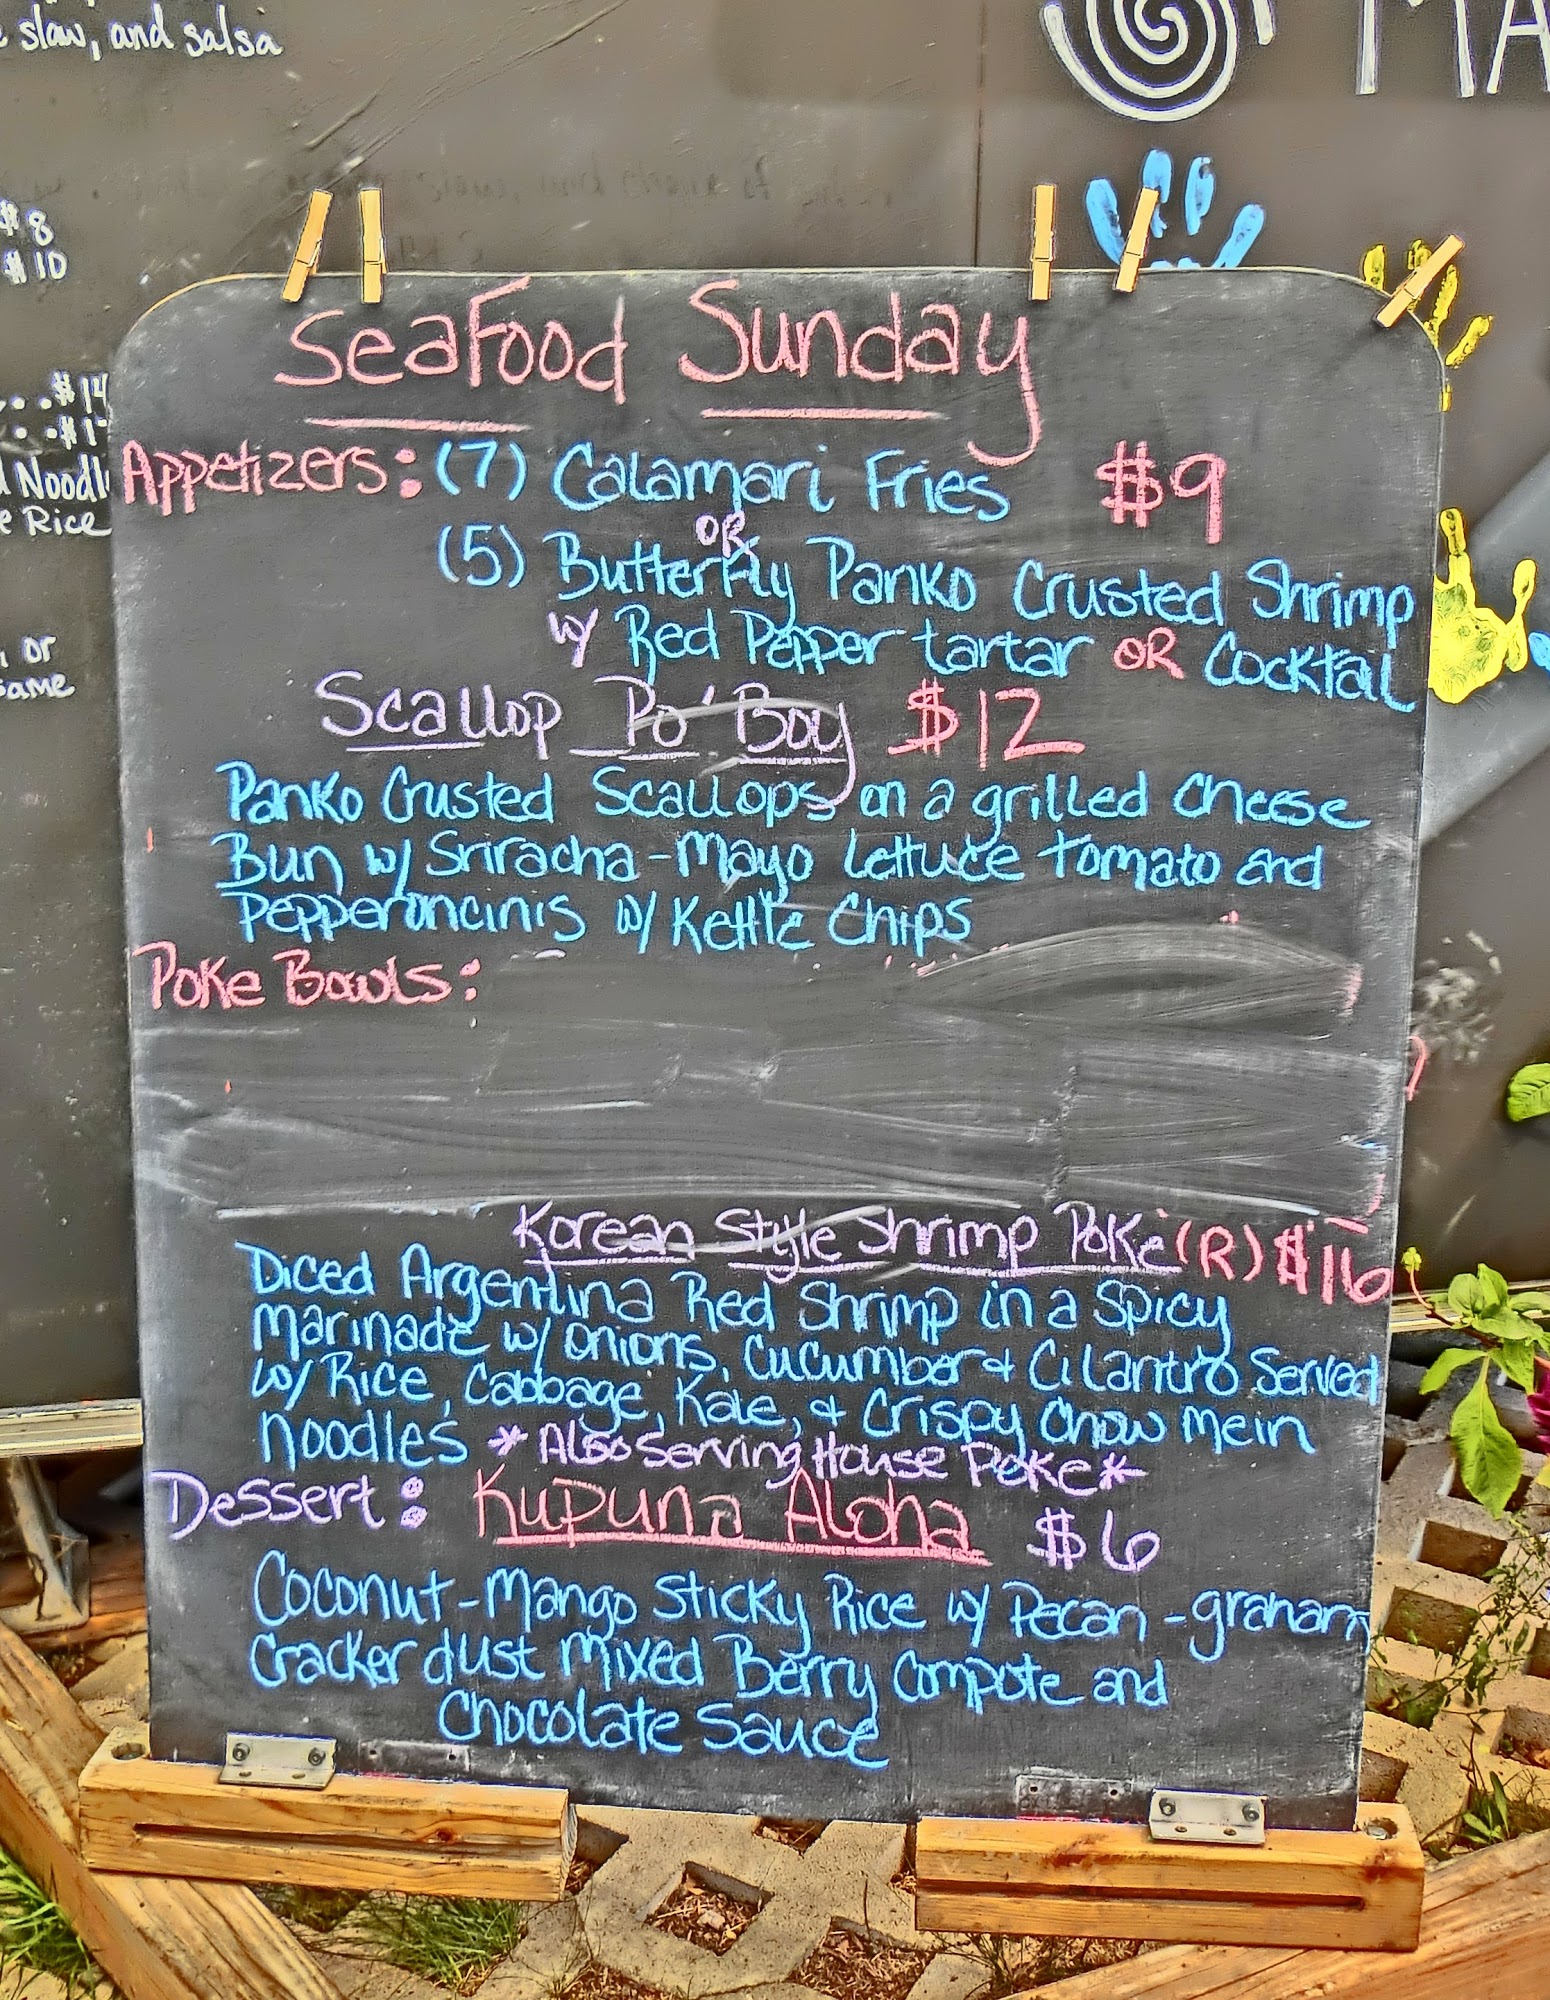 slaw, and salsa
MA
$8
$10
...$14
Noodl
Rice
or
same
SeaFood Sunday
Appetizers: (7) Calamari Fries $9
OR
(5) Butterfly Panko Crusted Shrimp
w/ Red Pepper tartar OR Cocktail
Scallop Po' Boy $12
Panko Crusted Scallops on a grilled cheese
Bun w/ Sriracha-Mayo Lettuce tomato and
Pepperoncinis w/ Kettle Chips
Poke Bowls:
Korean Style Shrimp Poke (R) $16
Diced Argentina Red Shrimp in a Spicy
Marinade w/ onions, Cucumber & Cilantro Served
w/ Rice, Cabbage, Kale, & Crispy Chow Mein
Noodles *Also Serving House Poke*
Dessert: Kupuna Aloha $6
Coconut-Mango Sticky Rice w/ Pecan-graham
Cracker dust Mixed Berry Compote and
Chocolate Sauce